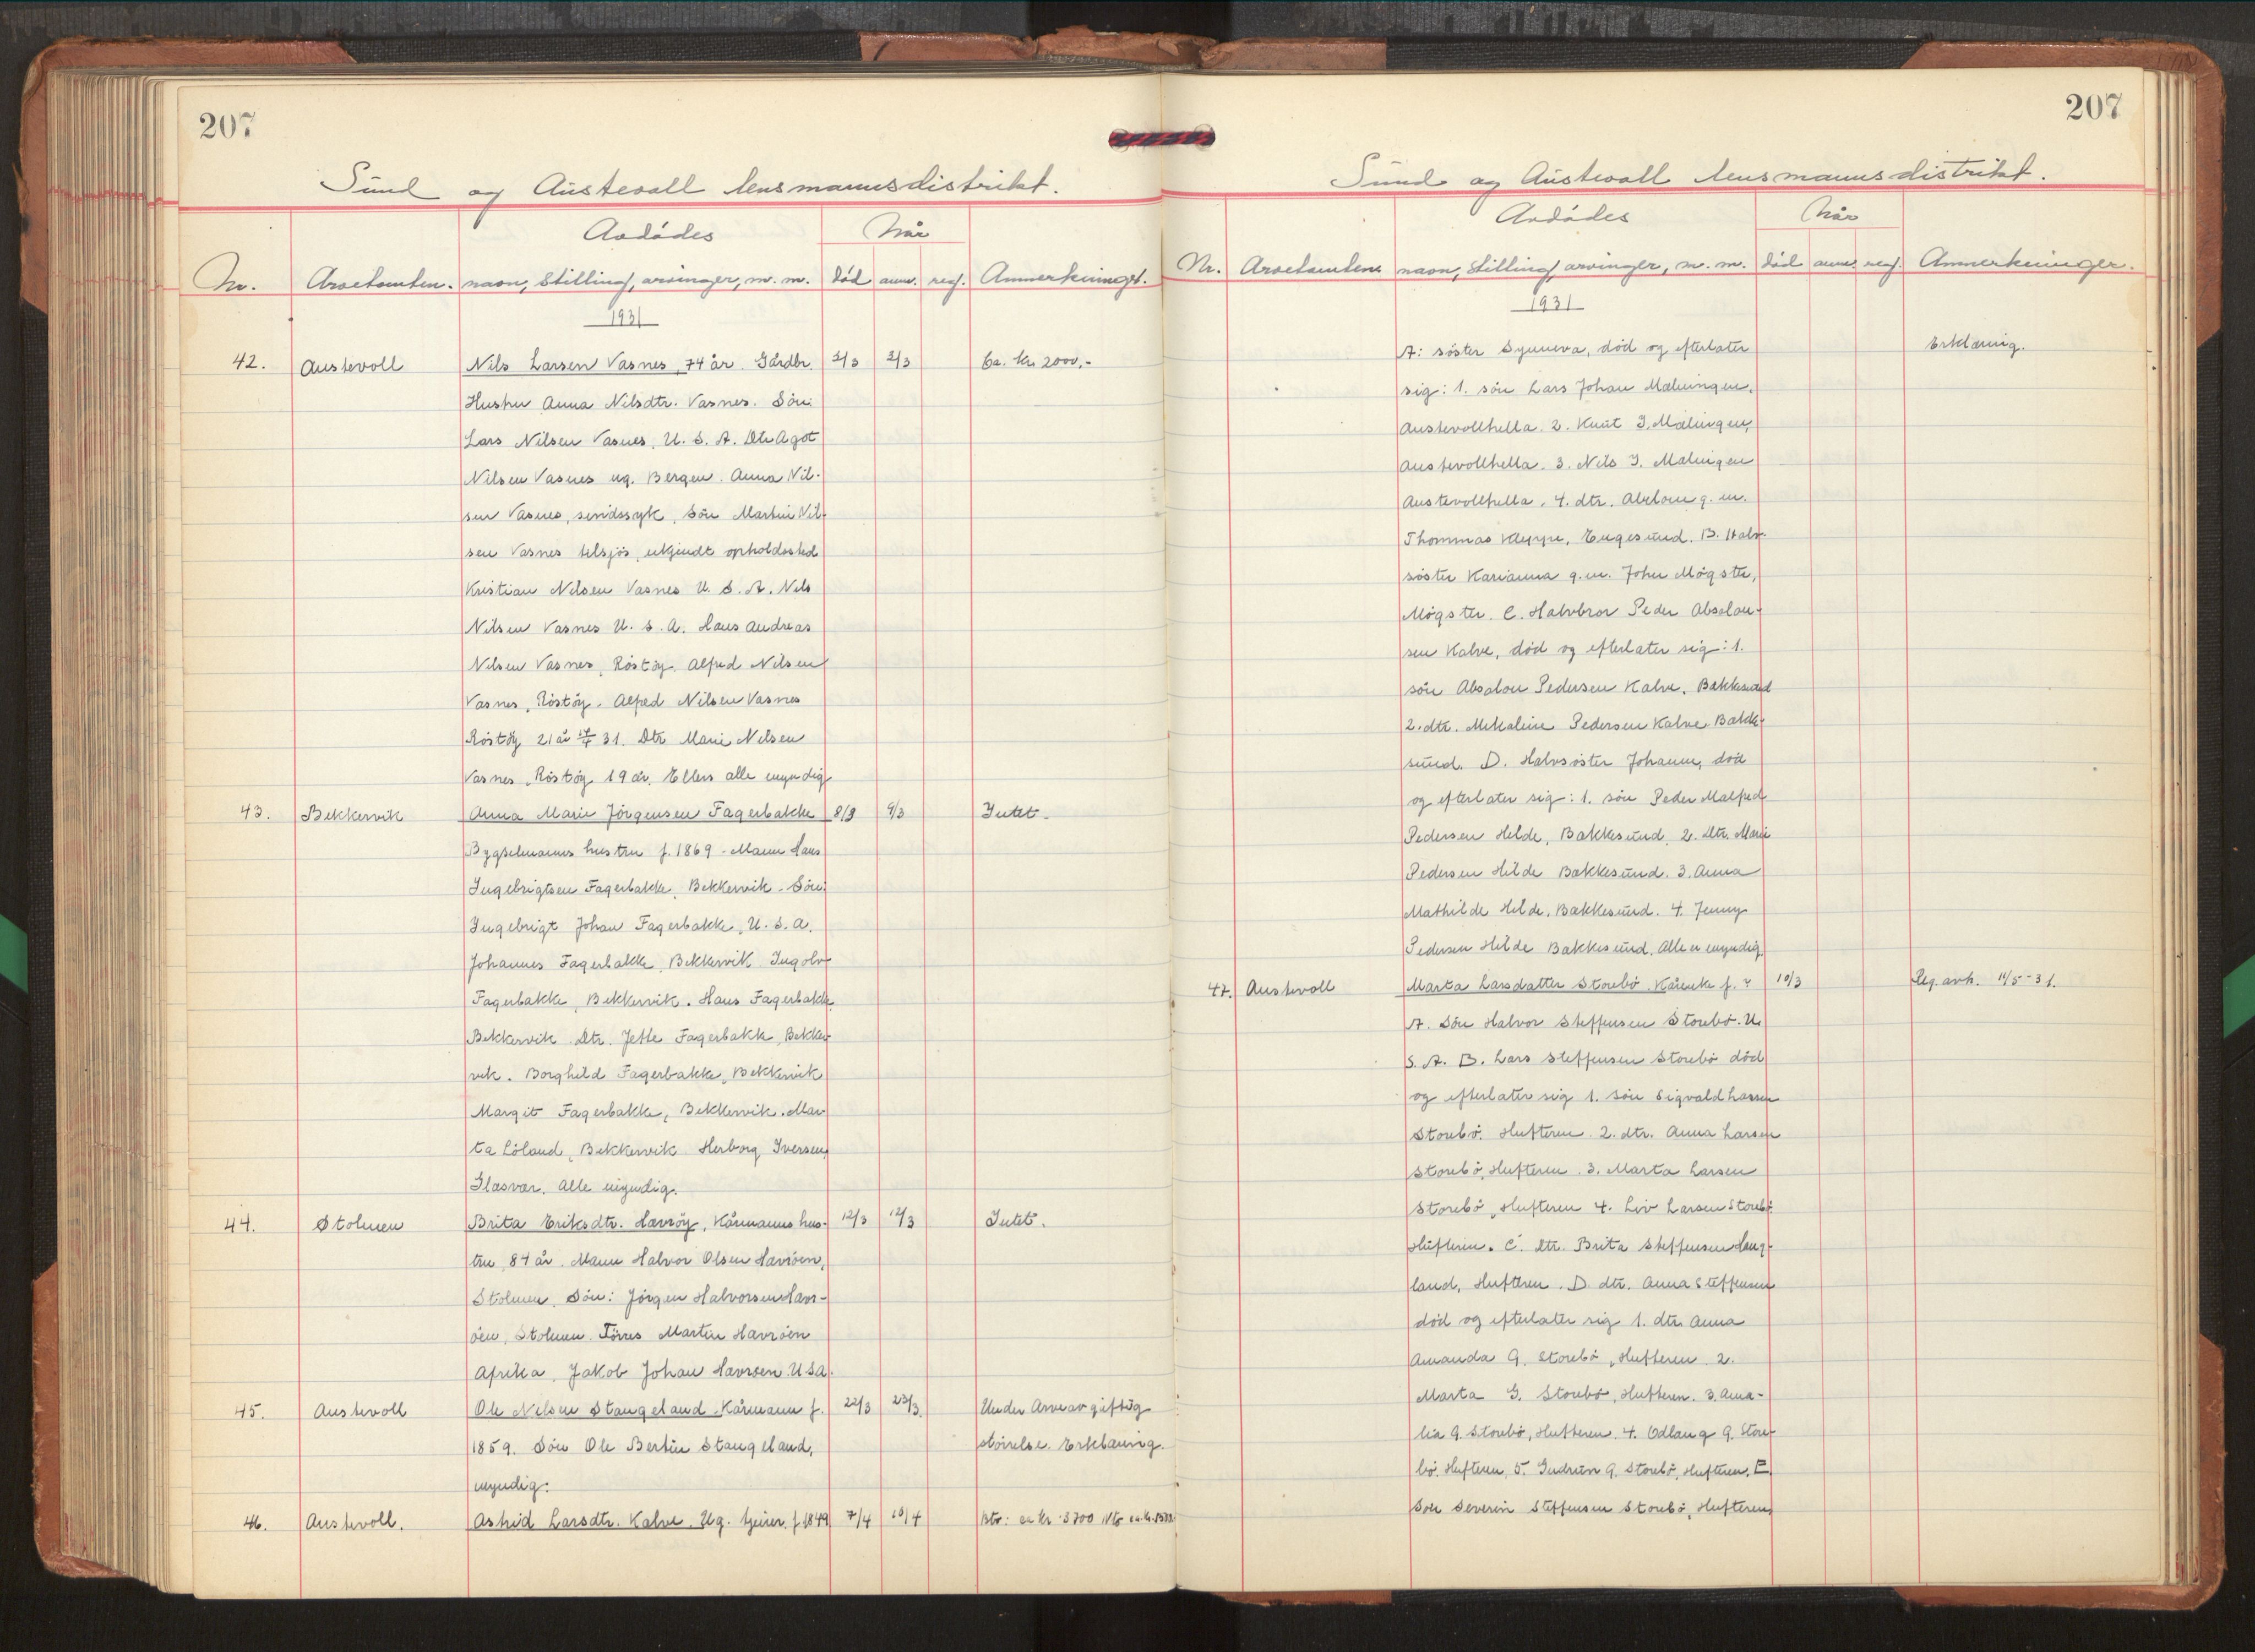 207
Sund og Austevoll lensmannsdistrikt.
Avdødes
Når
Nr. Arvetomten. navn, Stilling, arvinger, m. m. død anm. reg. Anmerkninger.
1931
42. Austevoll Nils Larsen Vasnes, 74 år. Gårdbr. 2/3 2/3 Ca. kr. 2000,-
Hustru Anna Nilsdtr. Vasnes. Søn:
Lars Nilsen Vasnes, U. S. A. Dtr Agot
Nilsen Vasnes ug. Bergen. Anna Nil-
sen Vasnes, sindssyk, Søn Martin Nil-
sen Vasnes tilsjøs, ukjendt opholdssted
Kristian Nilsen Vasnes U. S. A. Nils
Nilsen Vasnes U. S. A. Hans Andreas
Nilsen Vasnes, Röstöy. Alfred Nilsen
Vasnes, Röstöy. Alfred Nilsen Vasnes
Röstöy 21 år 31. Dtr Marie Nilsen
Vasnes, Röstöy 19 år. Ellers alle myndig
43. Bekkervik Anna Marie Jörgensen Fagerbakke 8/3 9/3 Intet.
Bygselmanns hustru f. 1869. Mann Hans
Ingebrigtsen Fagerbakke, Bekkervik. Søn:
Ingebrigt Johan Fagerbakke, U. S. A.
Johannes Fagerbakke, Bekkervik Ingolv
Fagerbakke, Bekkervik. Hans Fagerbakke,
Bekkervik Dtr. Jette Fagerbakke, Bekker-
vik. Borghild Fagerbakke, Bekkervik
Margit Fagerbakke, Bekkervik. Mar-
ta Löland, Bekkervik Herborg Iversen,
Glasvær. Alle myndig.
44. Stolmen Brita Eriksdtr. Havröy, Kårmanns hus- 12/3 12/3 Intet.
tru 84 år. Mann Halvor Olsen Havröen,
Stolmen. Søn: Jörgen Halvorsen Havr-
öen, Stolmen. Törres Martin Havröen
Afrika, Jakob Johan Havröen. U.S.A.
45. Austevoll Ole Nilsen Stangeland. Kårmann f. 22/3 23/3 Under Arveavgiftög
1859. Søn Ole Bertin Stangeland, störrelse. Erklæring.
myndig.
46. Austevoll. Astrid Larsdtr. Kalve. Ug. tjener. f. 1849 7/4 10/4 Bto: ca kr. 3700 Nto ca. kr.
207
Sund og Austevoll lensmannsdistrikt.
Avdødes
Når
Nr. Arvetomten navn, Stilling, arvinger, m. m. død anm. reg. Anmerkninger.
1931
A: søster Synneva, død og efterlater Erklæring.
sig: 1. søn Lars Johan Malmingen,
Austevollhella. 2. Knut J. Malmingen,
Austevollhella. 3. Nils J. Malmingen
Austevollhella. 4. dtr. Abelone g. m.
Thommas Kleppe, Engesund. B. Halv-
søster Karianna g. m. John Mögster,
Mögster. C. Halvbror Peder Absalon-
sen Kalve, død og efterlater sig: 1.
søn Absalon Pedersen Kalve. Bakkesund
2. dtr. Mekaline Pedersen Kalve Bakke-
sund. D. Halvsøster Johanne, död
og efterlater sig: 1. søn Peder Malfred
Pedersen Helde, Bakkesund, 2. dtr. Marie
Pedersen Hilde Bakkesund. 3. Anna
Mathilde Helde, Bakkesund. 4. Jenny
Pedersen Hilde Bakkesund. Alle er myndig.
47. Austevoll Marta Larsdatter Storebö. Kårenke f. ? 10/3 Reg. avh. 11/5-31.
A. Søn Halvor Steffensen Storebö. U.
S. A. B. Lars Steffensen Storebö död
og efterlater sig 1. søn Sigvald Larsen
Storebö. Hufteren. 2. dtr. Anna Larsen
Storebö, Hufteren. 3. Marta Larsen
Storebö, Hufteren 4. Liv Larsen Storebö
Hufteren. C. dtr. Brita Steffensen Haug-
land, Hufteren. D. dtr. Anna Steffensen
død og efterlater sig 1. dtr. Anna
Amanda G. Storebö, Hufteren. 2.
Marta G. Storebö, Hufteren. 3. Ama-
lia G. Storebö, Hufteren. 4. Odlaug G. Store-
bö. Hufteren, 5. Gudrun G. Storebö, Hufteren. E.
Søn Severin Steffensen Storebö, Hufteren,